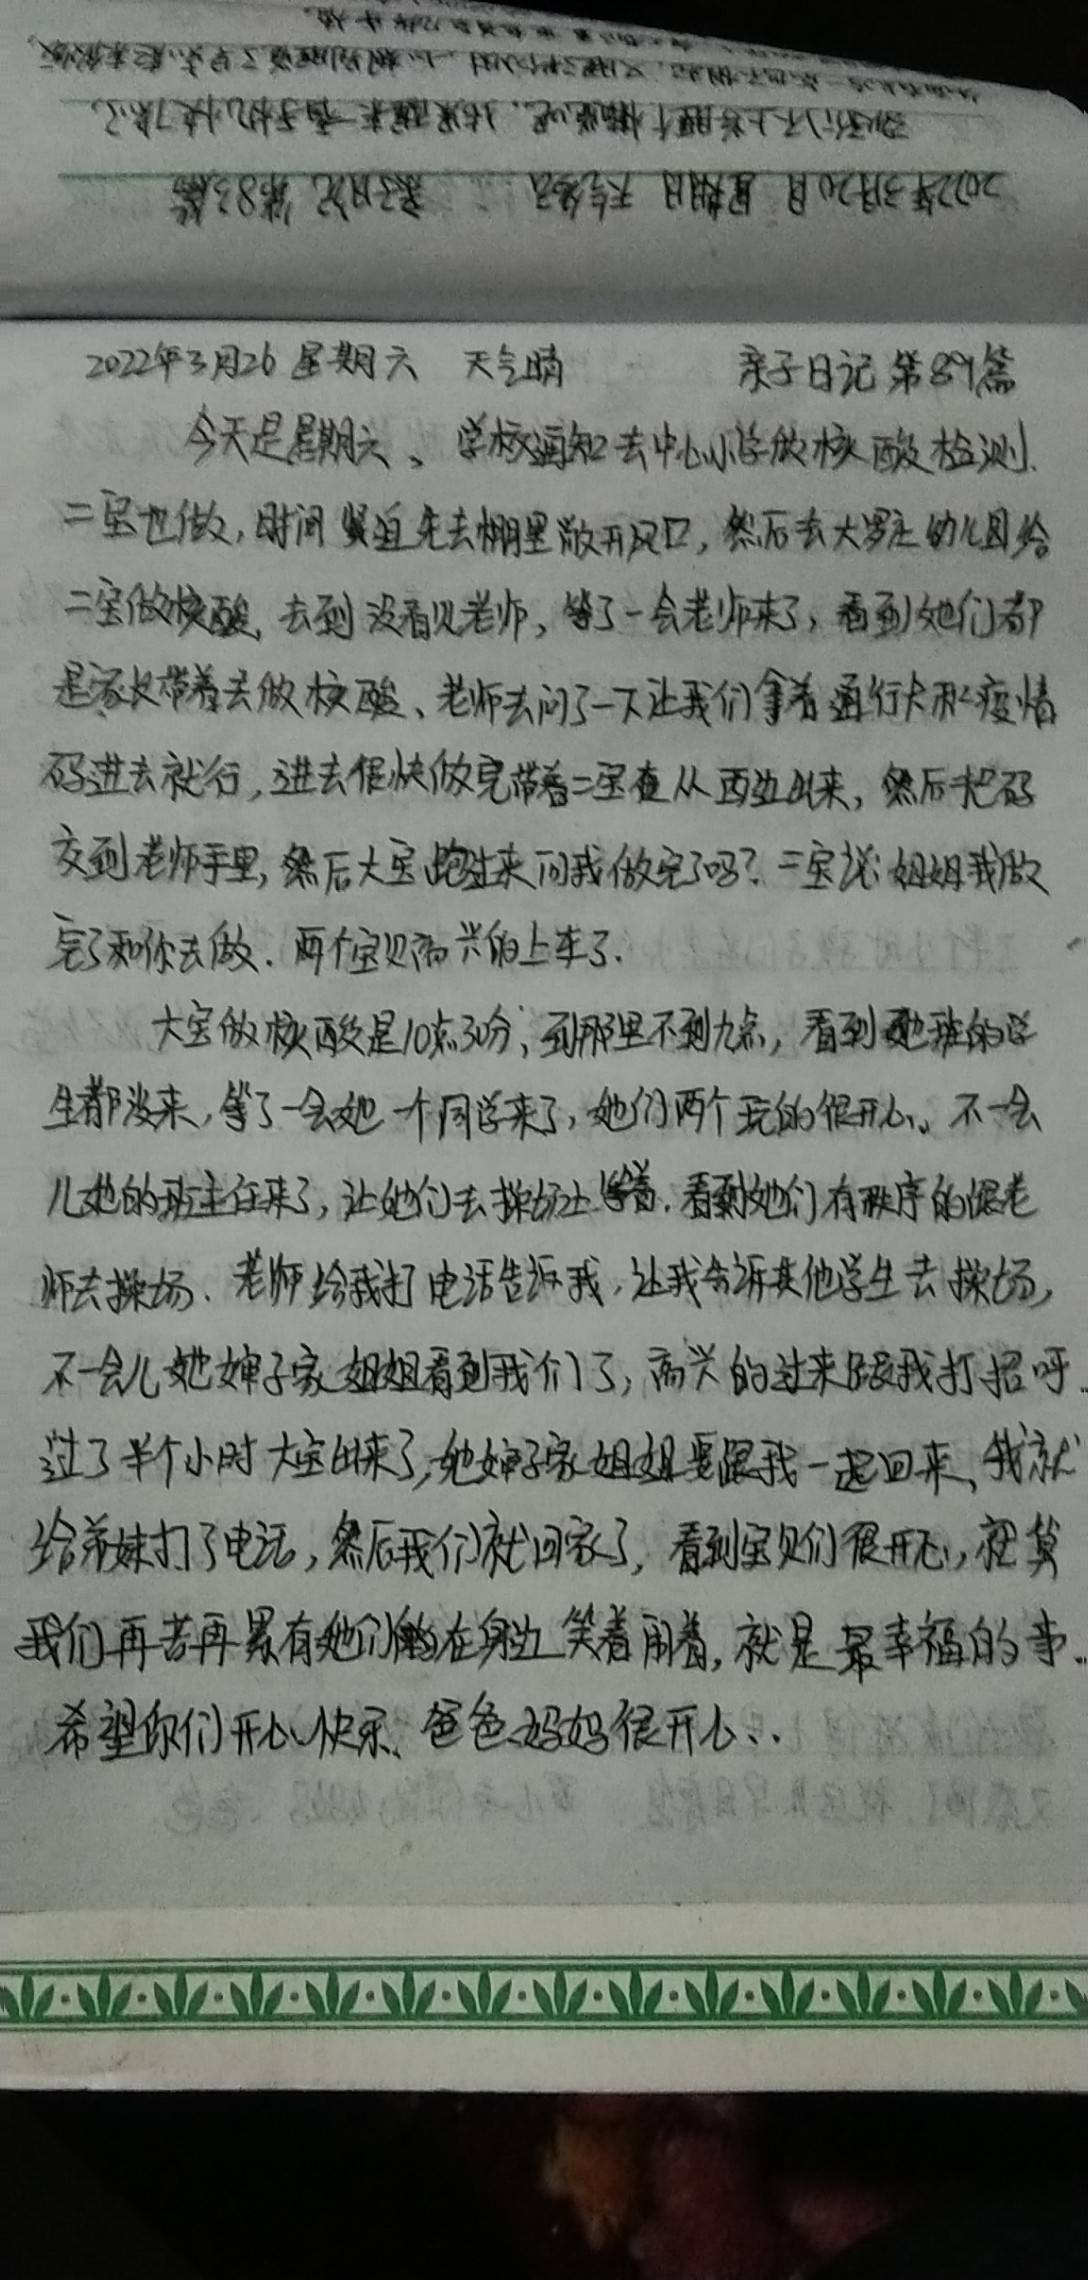 2022年3月20日 星期日 天气 亲子日记 第83篇
2022年3月26 星期六 天气晴 亲子日记 第89篇
今天是星期六、学校通知去中心小学做核酸检测.
二宝也做,时间紧迫先去棚里放开风口,然后去大罗庄幼儿园给
二宝做核酸,去到没看见老师,等了一会老师来了,看到她们都
是家长带着去做核酸、老师去问了一下让我们拿着通行卡和疫情
码进去就行,进去很快做完带着二宝在从西边出来,然后把码
交到老师手里,然后大宝跑过来问我做完了吗?二宝说:姐姐我做
完了和你去做.两个宝贝高兴的上车了.
大宝做核酸是10点30分,到那里不到九点,看到她班的学
生都没来,等了一会她一个同学来了,她们两个玩的很开心、不一会
儿她的班主任来了,让她们去操场上等着.看到她们有秩序的跟老
师去操场、老师给我打电话告诉我,让我告诉其他学生去操场,
不一会儿她婶子家姐姐看到我们了,高兴的过来跟我打招呼..
过了半个小时大宝出来了,她婶子家姐姐要跟我一起回来、我就
给弟妹打了电话,然后我们就回家了,看到宝贝们很开心,就算
我们再苦再累有她们俩在身边笑着闹着,就是最幸福的事..
希望你们开心快乐、爸爸妈妈很开心、..